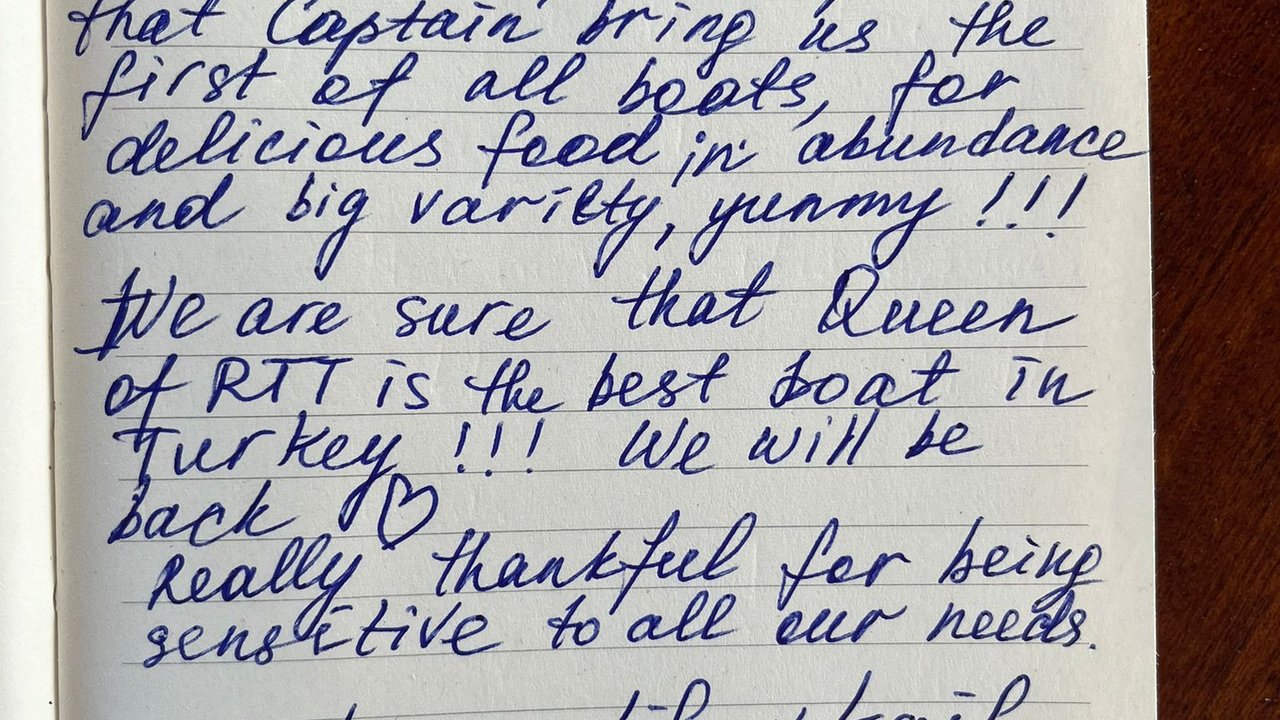 that Captain bring us the
first of all boats, for
delicious food in abundance
and big variety, yummy !!!
We are sure that Queen
of RTT is the best boat in
Turkey !!! We will be
back ♡
Really thankful for being
sensitive to all our needs.